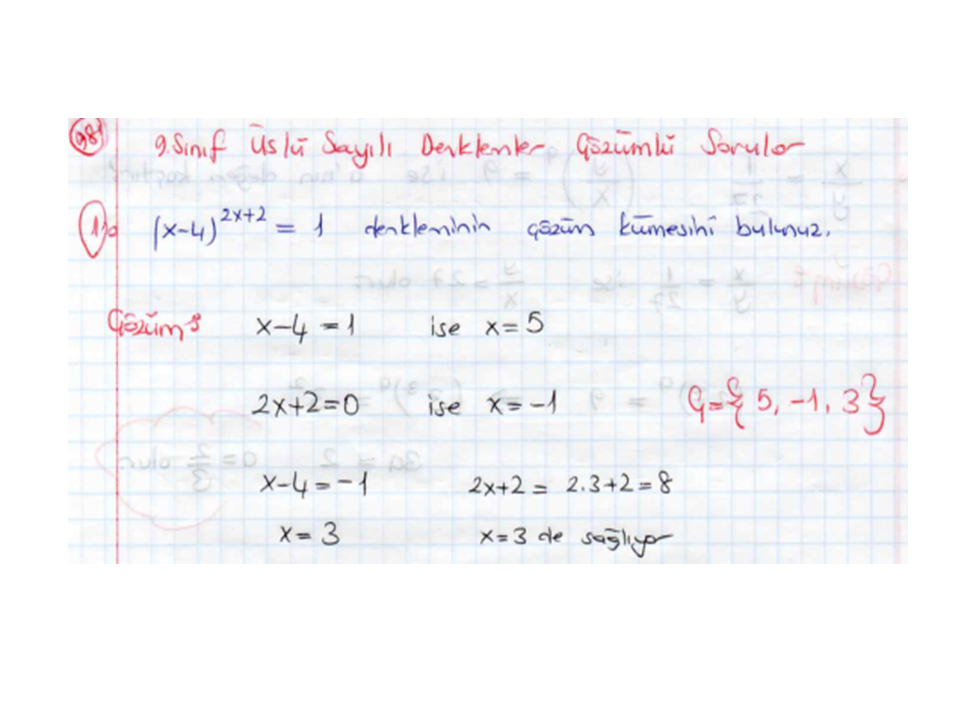 981
9.Sınıf Üslü Sayılı Denklemler Çözümlü Sorular
1) (x-4)^{2x+2} = 1 denkleminin çözüm kümesini bulunuz.
Çözüm: x-4 = 1 ise x=5
2x+2=0 ise x=-1 Ç={5, -1, 3}
x-4=-1 2x+2= 2.3+2=8
x=3 x=3 de sağlıyor